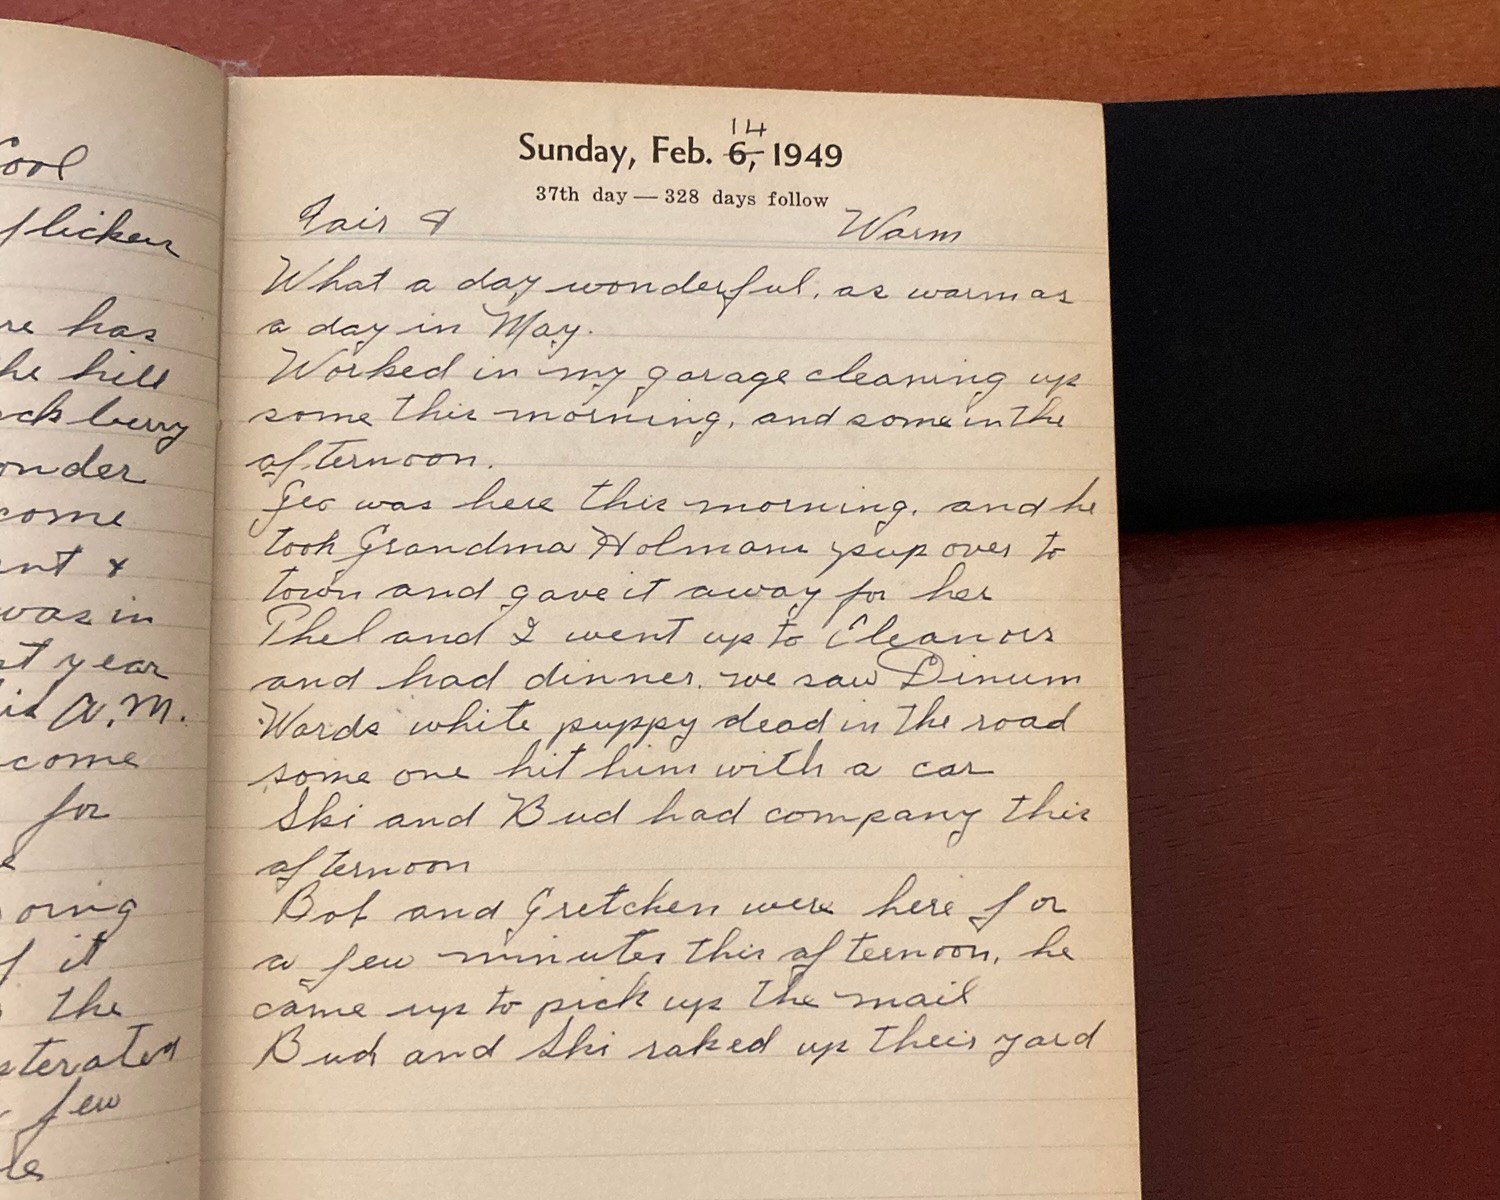 Cool
flicker
re has
he hill
ck berry
onder
come
ent &
was in
st year
his A.M.
come
for
e
oing
f it
the
sterated
few
le
14
Sunday, Feb. 6, 1949
37th day — 328 days follow
Fair & Warm
What a day wonderful, as warm as
a day in May.
Worked in my garage cleaning up
some this morning, and some in the
afternoon.
Geo was here this morning, and he
took Grandma Holmans pup over to
town and gave it away for her
Thel and I went up to Eleanors
and had dinner. we saw
Wards white puppy dead in the road
some one hit him with a car
Ski and Bud had company this
afternoon
Bob and Gretchen were here for
a few minutes this afternoon, he
came up to pick up the mail
Bud and Ski raked up their yard